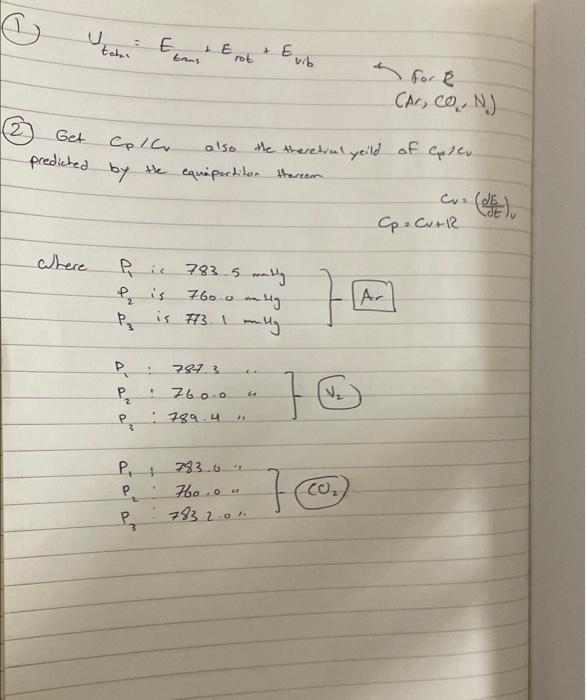 ① U total = E trans + E rot + E vib
← for E
(Ar, CO₂, N₂)
② Get Cp/Cv also the theretical yeild of Cp/Cv
predicted by the equipartition therom
Cv = (dE/dt)v
Cp = Cv+R
where P₁ is 783.5 mmHg
P₂ is 760.0 mmHg
P₃ is 773.1 mmHg
Ar
P₁ : 787.3 "
P₂ : 760.0 "
P₃ : 789.4 "
N₂
P₁ : 783.6 "
P₂ : 760.0 "
P₃ : 783 2.0 "
CO₂